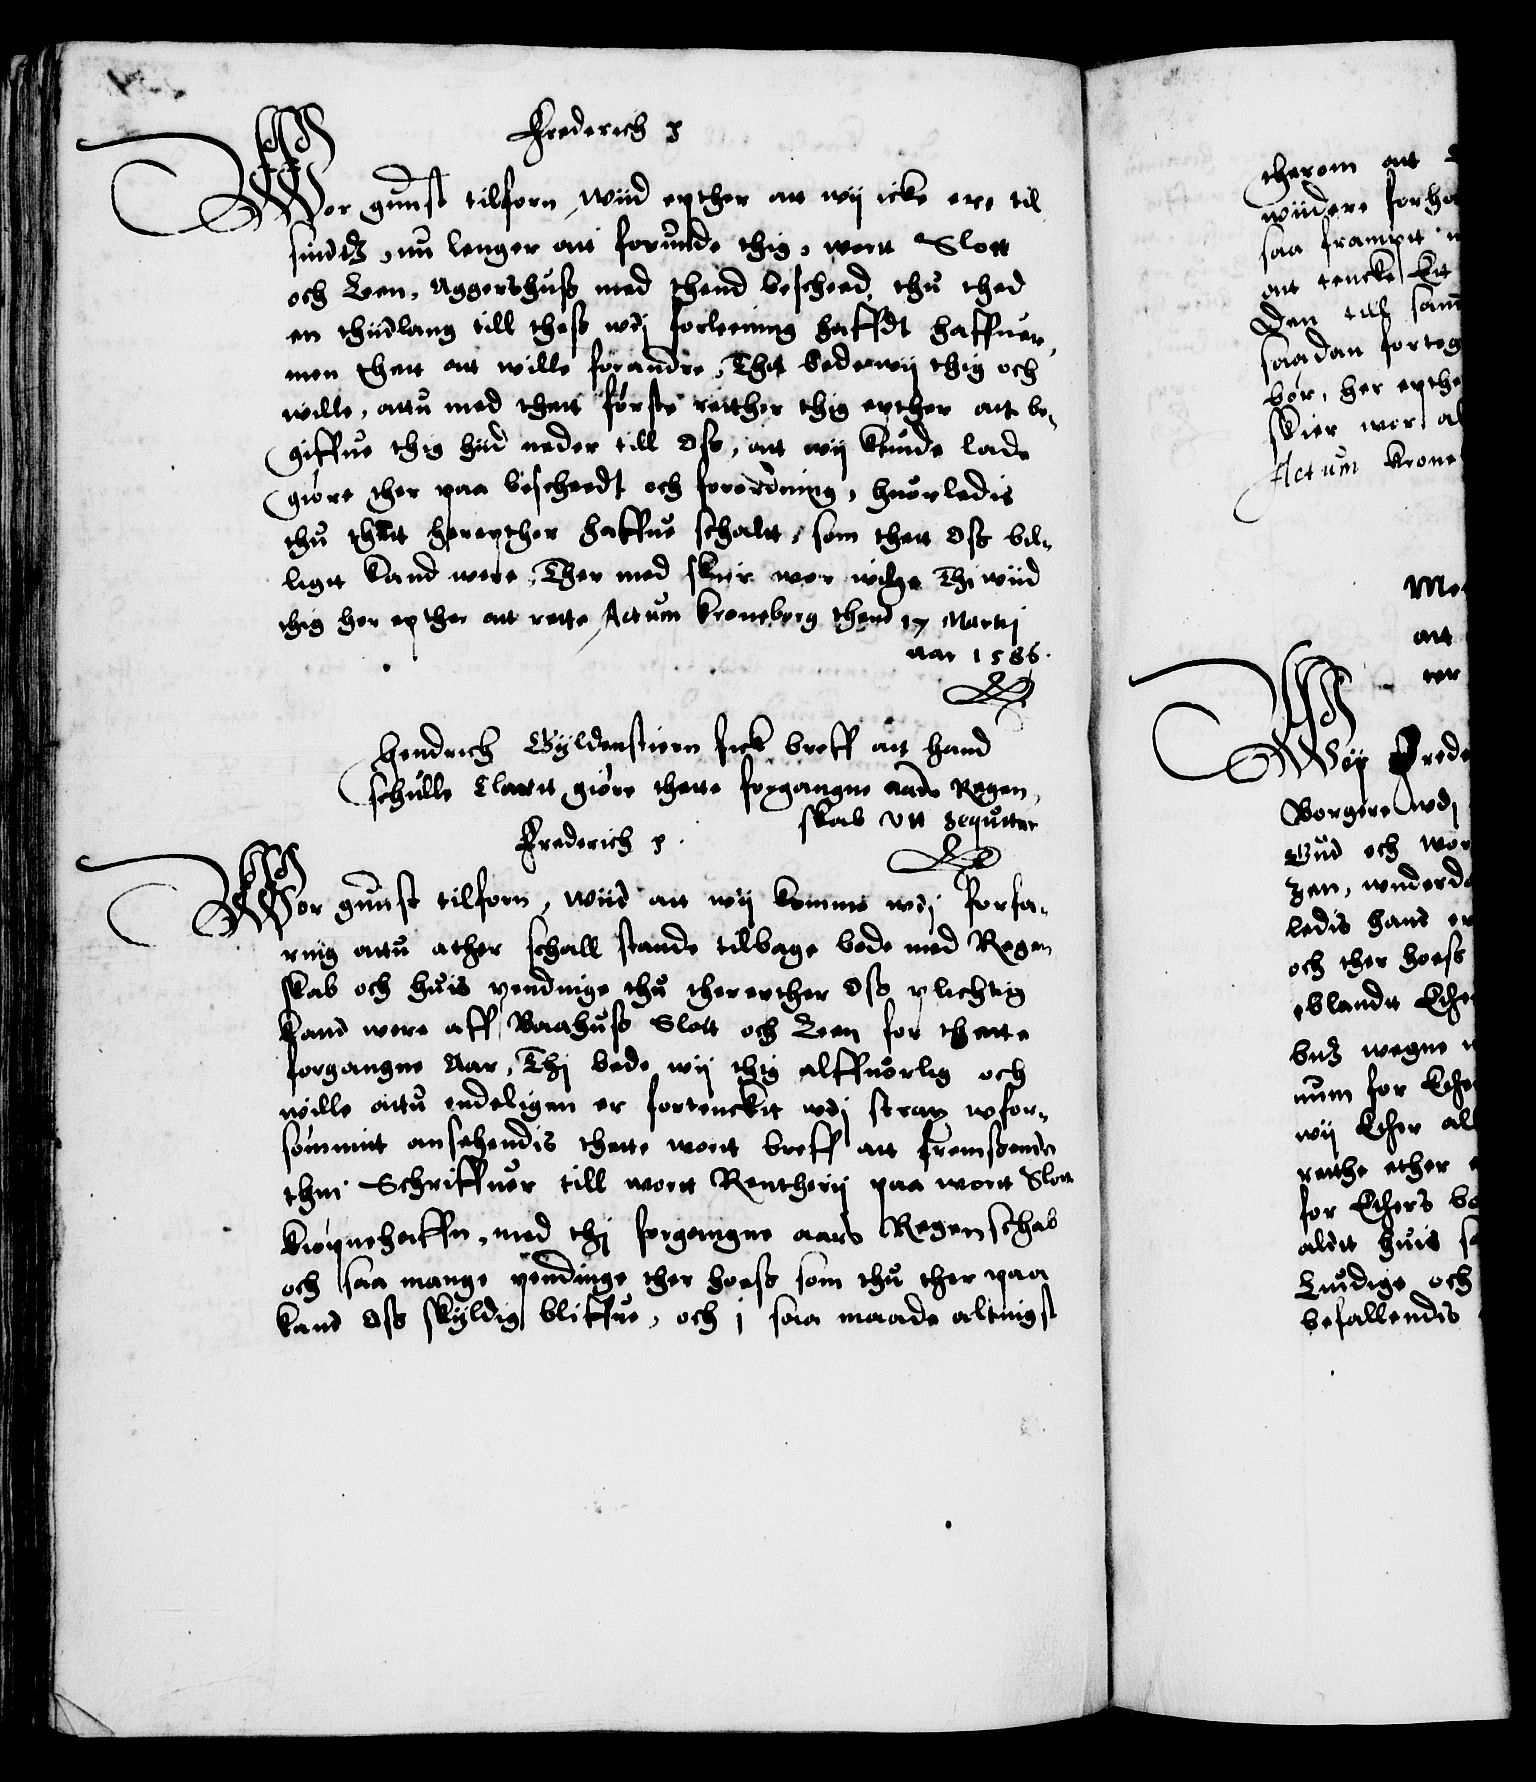 Frederich
Wor gunst tilforn, Wiid epther att wij icke ere til
sindtz, nu lenger att forunde thig, wortt Slott
och Leen, Aggershuss med thend bescheed, thu thed
en thiidlang till thess wdj forleening hafft haffuer,
men thett att wille forandre, Thij bede wij thig och
wille, attu med thett første reitther thig epther att be-
giffue thig hiid neder till Oss, att wij kunde lade
giøre ther paa bescheedt och forordning, huorledis
thu thett herepther haffue schalt, som thett Oss bil-
ligt kand were, Ther med skier wor wilge Thi wiid
thig her epther att rette Actum Kroneborg thend 17 Martij
aar 1586.
Hendrich Gyldenstiern fick breff att hand
schulle Clartt giøre thette forgangne aars Regen-
skab vtt sequitur
Frederich
Wor gunst tilforn, Wiid att wij komme wdj forfa-
ring attu ather schall stande tilbage bode med Regen
skab och huis pendinge thu therepther Oss plichtig
kand were aff Baahuss Slott och Leen for thette
forgangne Aar, Thj bede wij thig alffuorlig och
wille attu endeligen er fortenckt wdj strax wfor-
sømmit ansehendis thette wortt breff att fremskende
thin Schriffuer till wortt Rentherij paa wortt Slott
Kiøpnehaffn, med thj forgangne aars Regenschab
och saa mange pendinge ther hoess som thu ther paa
kand Oss skyldig bliffue, och j saa maade altingst
therom att
wiidere forha
saa frampt
att tencke Ett
Den till sam
saadan forteg
bør, her epthe
skier wor
Actum Krone
att
Wij Frede
Borgere wdj
Gud och wor
ledis hand er
och ther hoess
eblandt Ether
wegne
num for Ether
wij Ether all
reitthe ether
for Ethers
aldt huis
Luidige och
befallendis